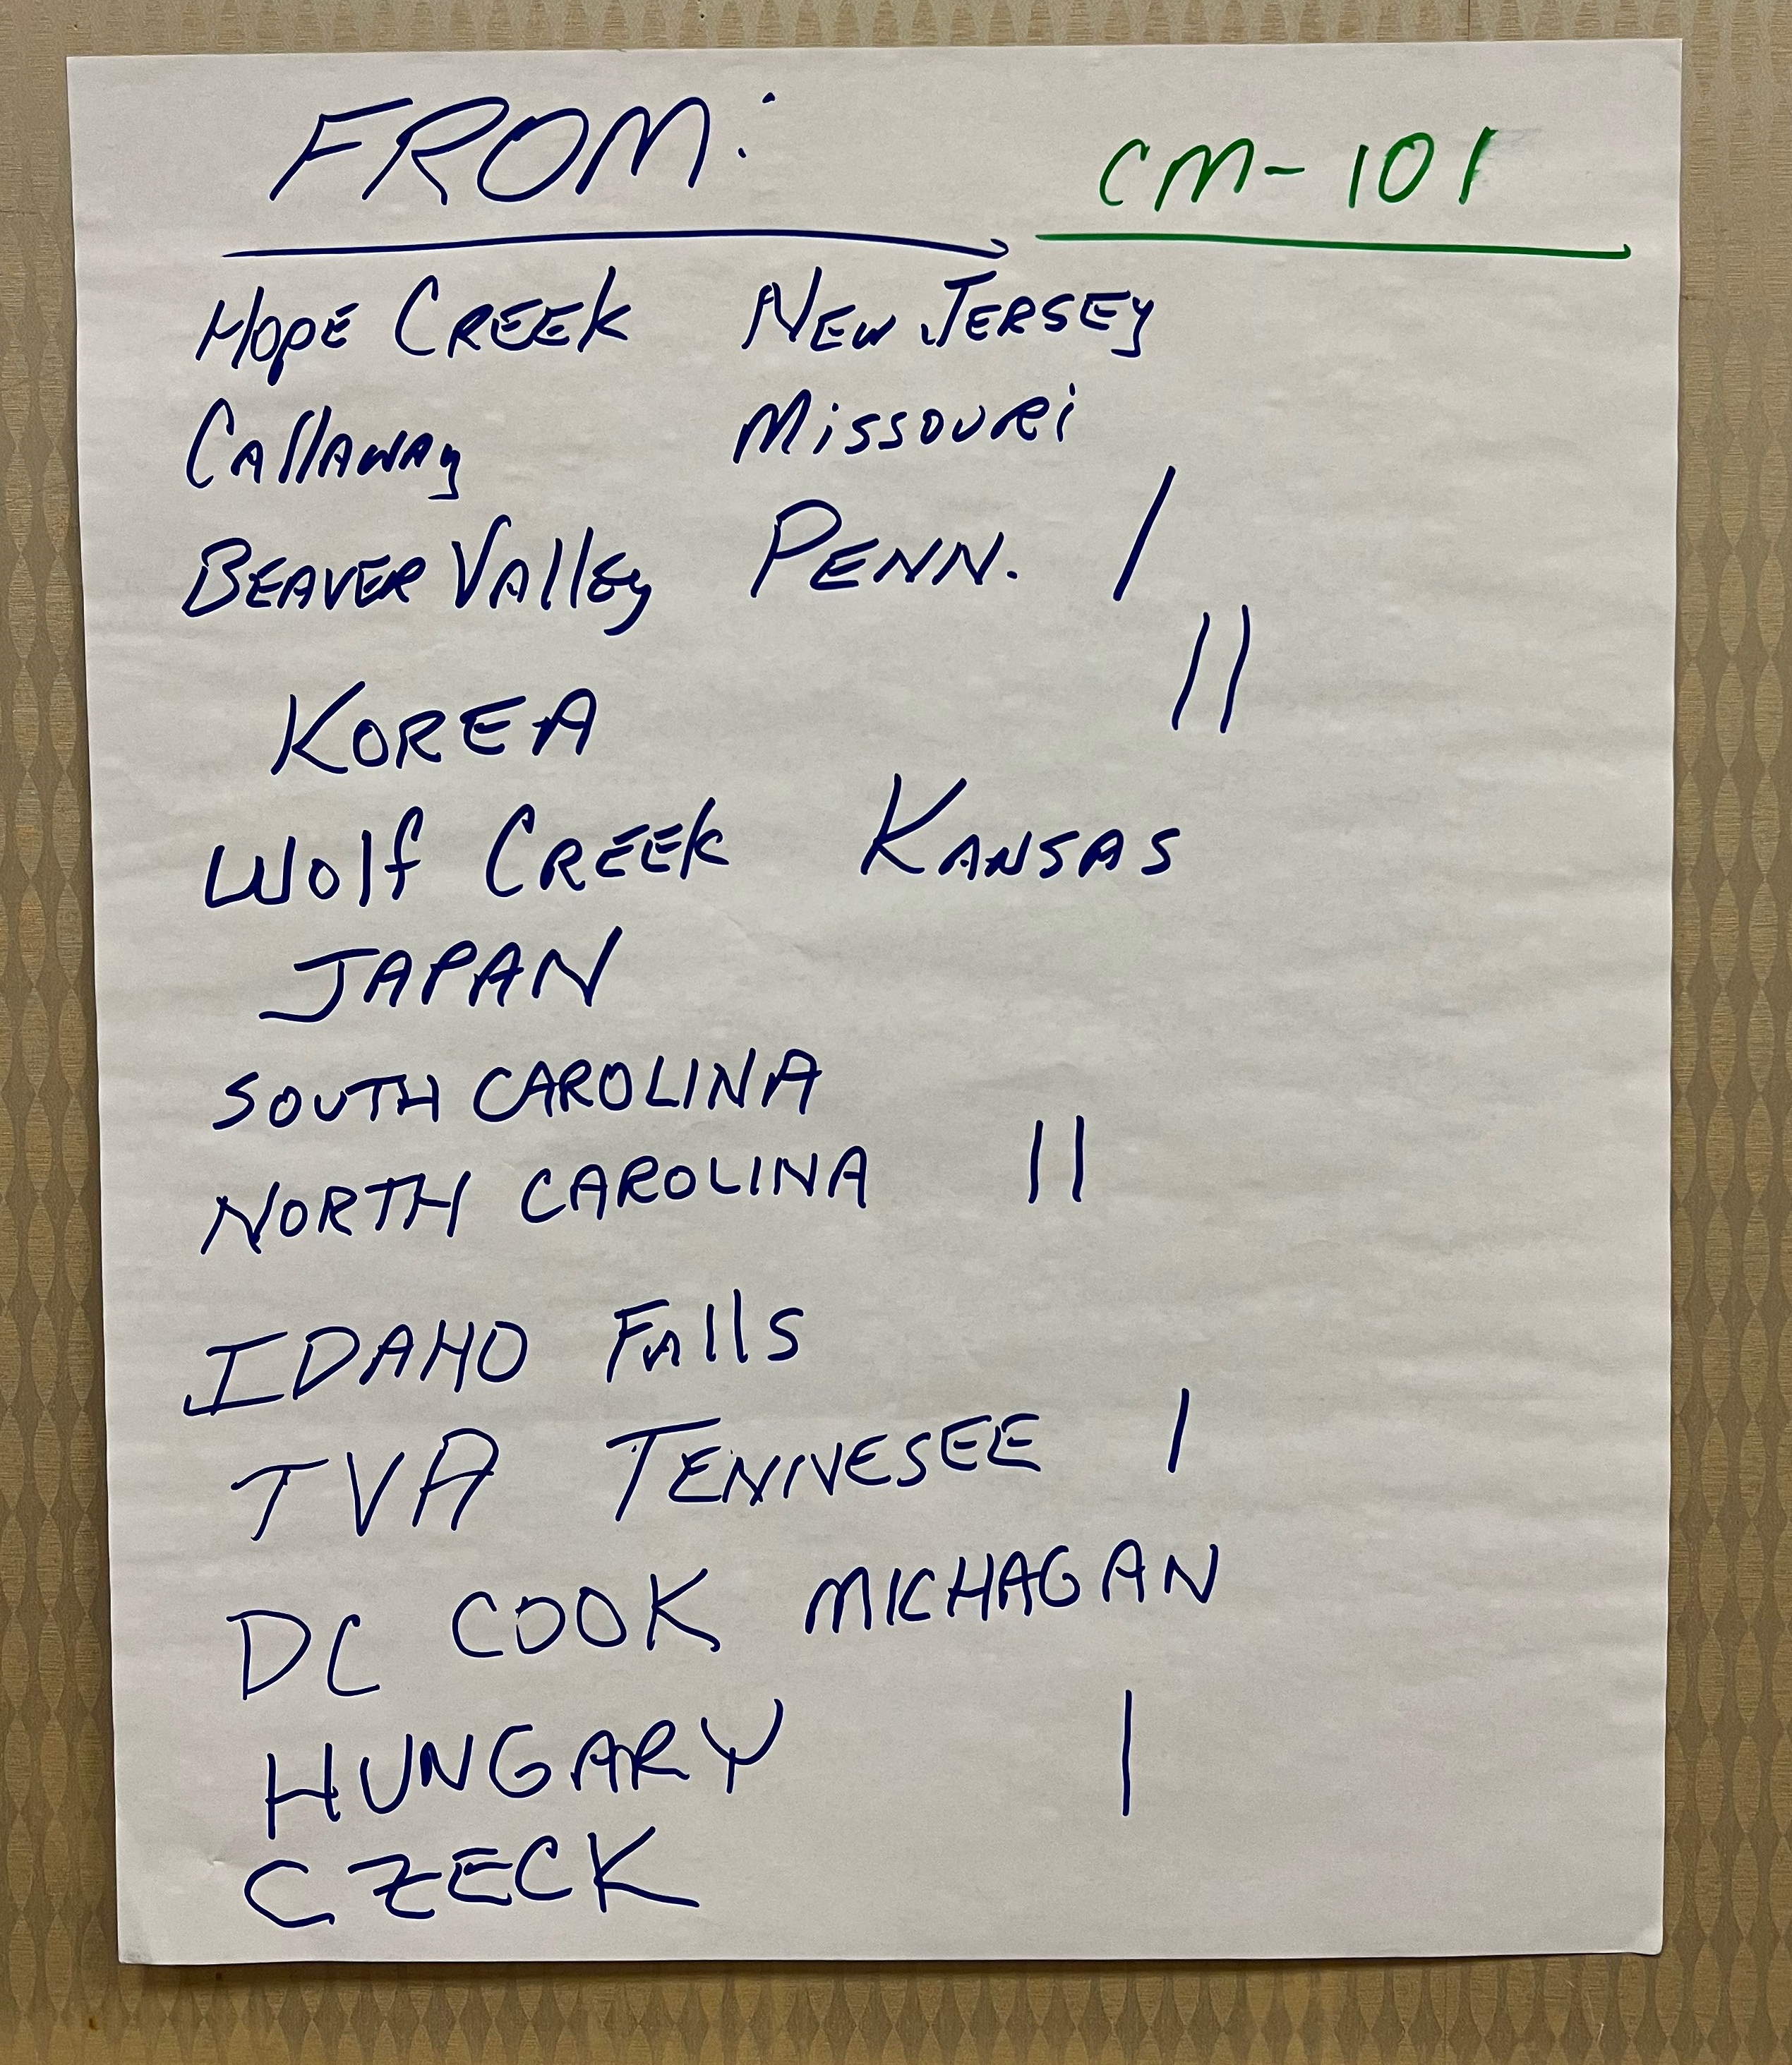 FROM: CM-101
HOPE CREEK NEW JERSEY
CAllAWAy MissOURi
BEAVER VAllEy PENN. |
KOREA ||
WOlf CREEK KANSAS
JAPAN
SOUTH CAROLINA
NORTH CAROLINA ||
IDAHO FAllS
TVA TENNESEE |
DC COOK MICHAGAN
HUNGARY |
CZECK